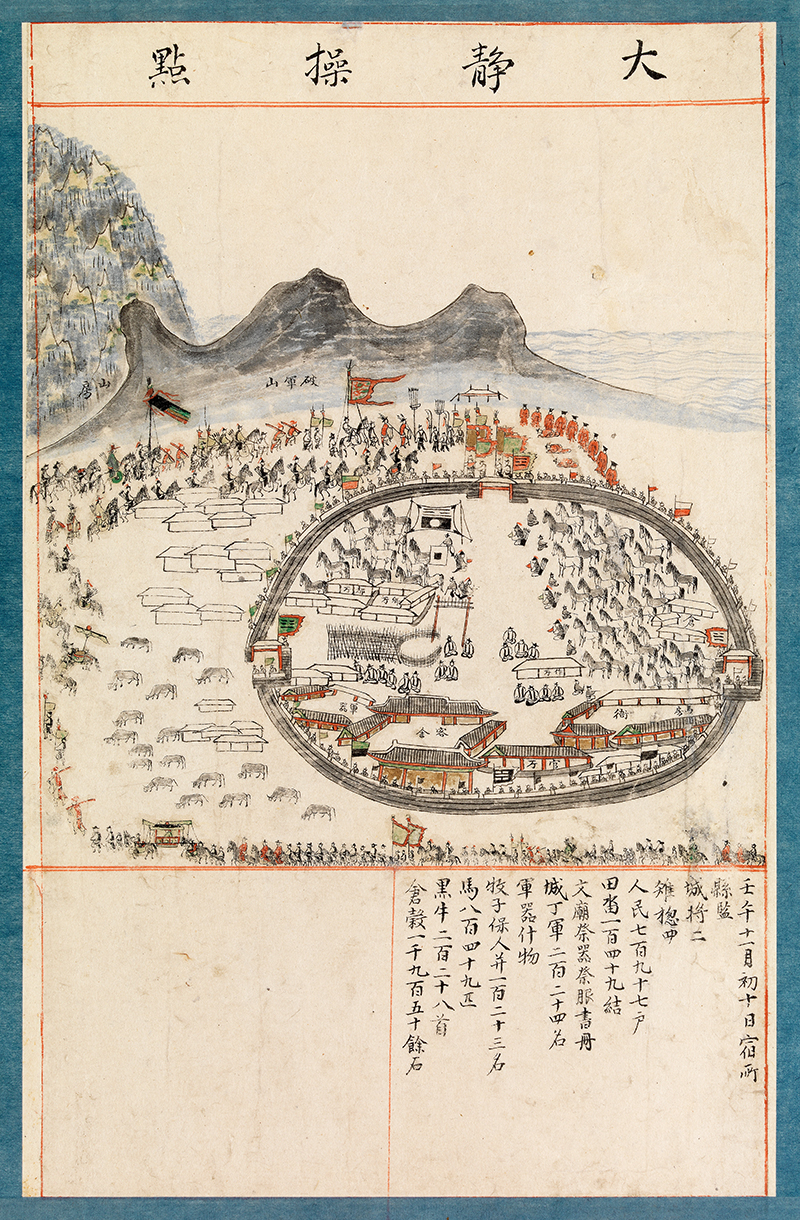 大静操點
破軍山
山房
倉
軍器
衙
客舍
壬午十一月初十日宿所
縣監
城将二
雉摠四
人民七百九十七户
田畓一百四十九結
文廟祭器祭服書冊
城丁軍二百二十四名
軍器什物
牧子保人并一百二十三名
馬八百四十九匹
黑牛二百二十八首
倉穀一千九百五十餘石